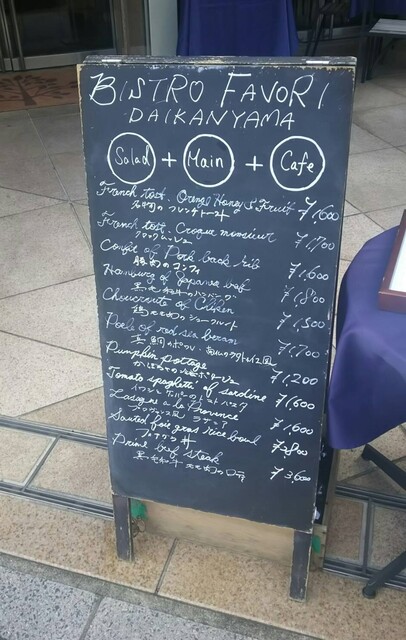 BISTRO FAVORI
DAIKANYAMA
Salad + Main + Cafe
French tost. Orange Honey & Fruit ¥1,600
フレンチトースト
French tost. Croque monsieur ¥1,700
クロックムッシュ
Confit of Pork back rib ¥1,600
豚肉のコンフィ
Hamburg of Japanese beef ¥1,800
黒毛和牛のハンバーグ
Choucroute of Chicken ¥1,500
鶏もも肉のシュークルート
Poele of red sea bream ¥1,700
真鯛のポワレ
Pumpkin pottage ¥1,200
かぼちゃの
Tomato spaghetti of sardine ¥1,600
Lasagne a la Provence ¥1,600
プロヴァンス風 ラザニア
Sauted foie gras rice bowl ¥2,800
フォアグラ丼
Prime beef steak ¥3,600
黒毛和牛 もも肉の